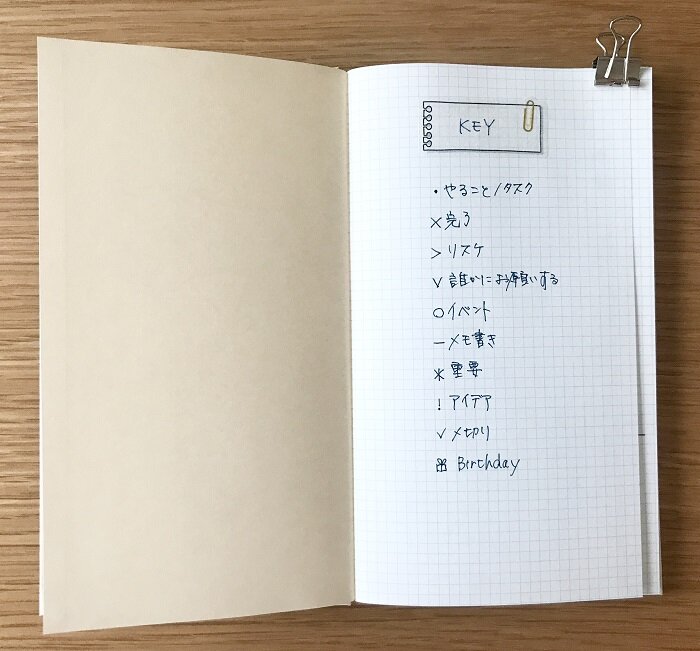 KEY
・やること/タスク
×完了
>リスケ
∨誰かにお願いする
○イベント
ーメモ書き
*重要
!アイデア
✓〆切り
Birthday